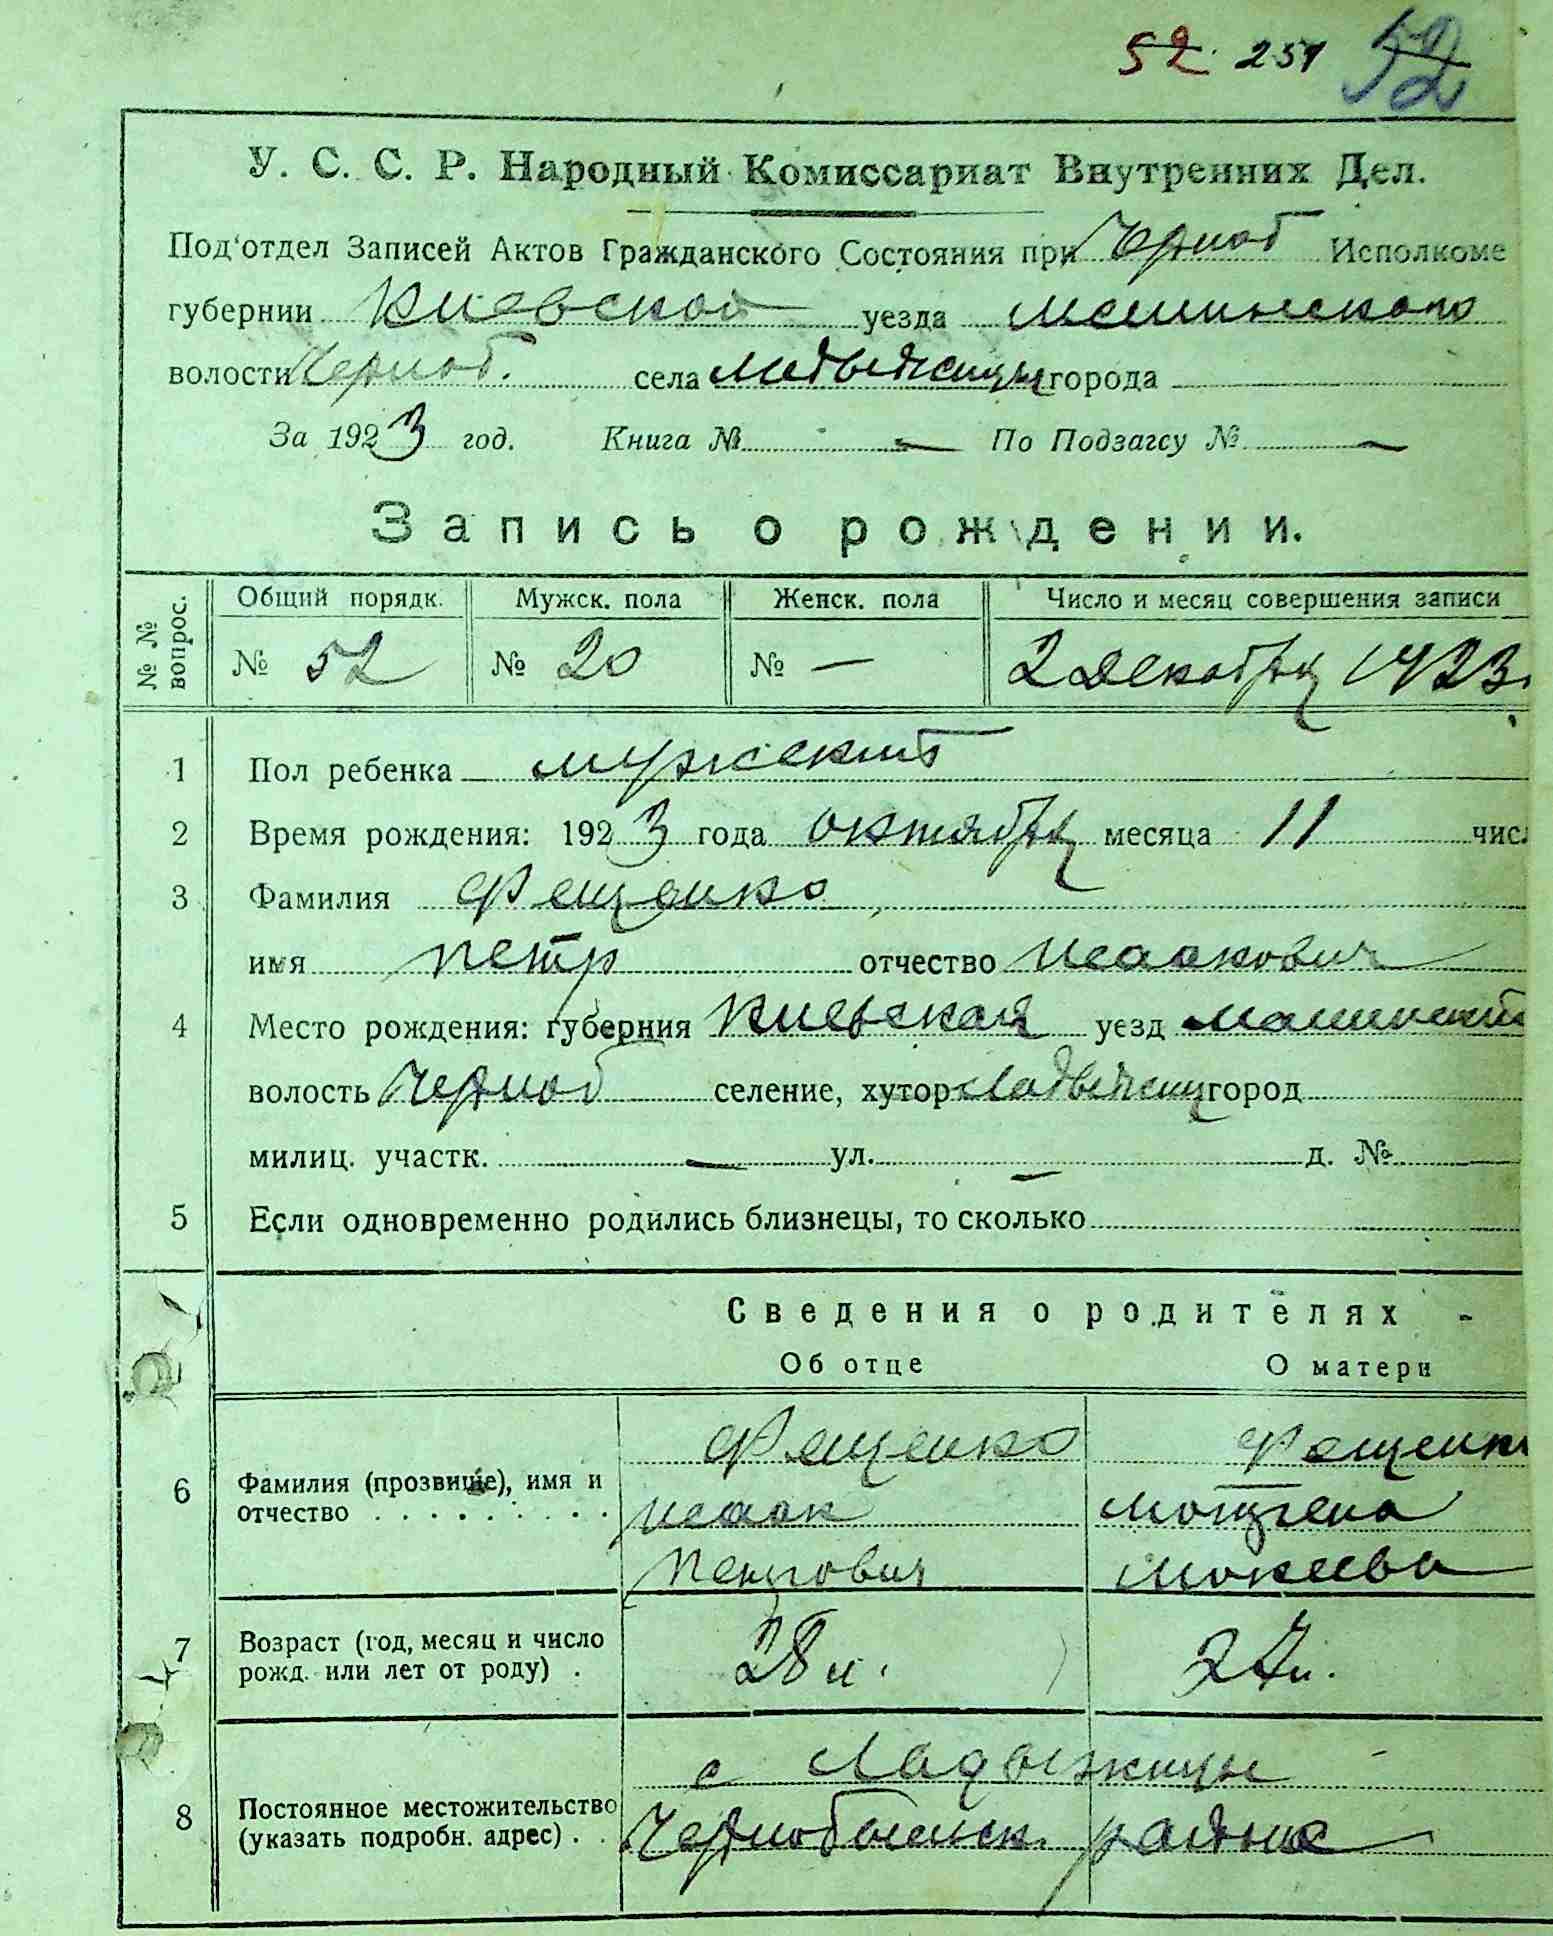 52. 251 52
У. С. С. Р. Народный Комиссариат Внутренних Дел.
Под'отдел Записей Актов Гражданского Состояния при Черноб Исполкоме
губернии Киевской уезда
волости Черноб. села города
За 1923 год. Книга № — По Подзагсу № —
Запись о рождении.
№ № вопрос. Общий порядк. Мужск. пола Женск. пола Число и месяц совершения записи
№ 52 № 20 № — 2 Декабря 1923
1 Пол ребенка мужской
2 Время рождения: 1923 года октября месяца 11 чис
3 Фамилия Фещенко
имя Петр отчество Исаакович
4 Место рождения: губерния Киевская уезд
волость Черноб селение, хутор город
милиц. участк. — ул. — д. №
5 Если одновременно родились близнецы, то сколько
Сведения о родителях
Об отце О матери
6 Фамилия (прозвище), имя и отчество Фещенко Фещенк
Исаак
Мокеева
7 Возраст (год, месяц и число рожд. или лет от роду) 28 л. 27 л.
8 Постоянное местожительство (указать подробн. адрес) с Ладыжицы
Чернобыльск. района